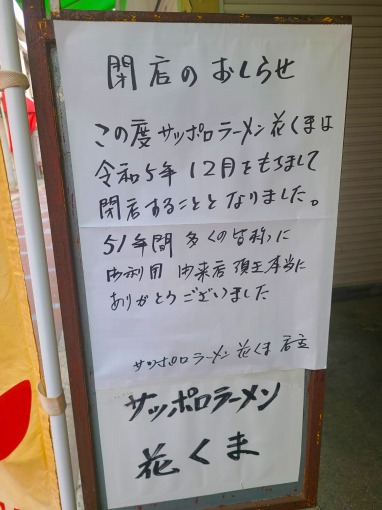 閉店のおしらせ
この度サッポロラーメン花くまは
令和5年12月をもちまして
閉店することとなりました。
51年間多くの皆称に
御利用 御来店 頂き本当に
ありがとうございました
サッポロラーメン花くま店主
サッポロラーメン
花くま